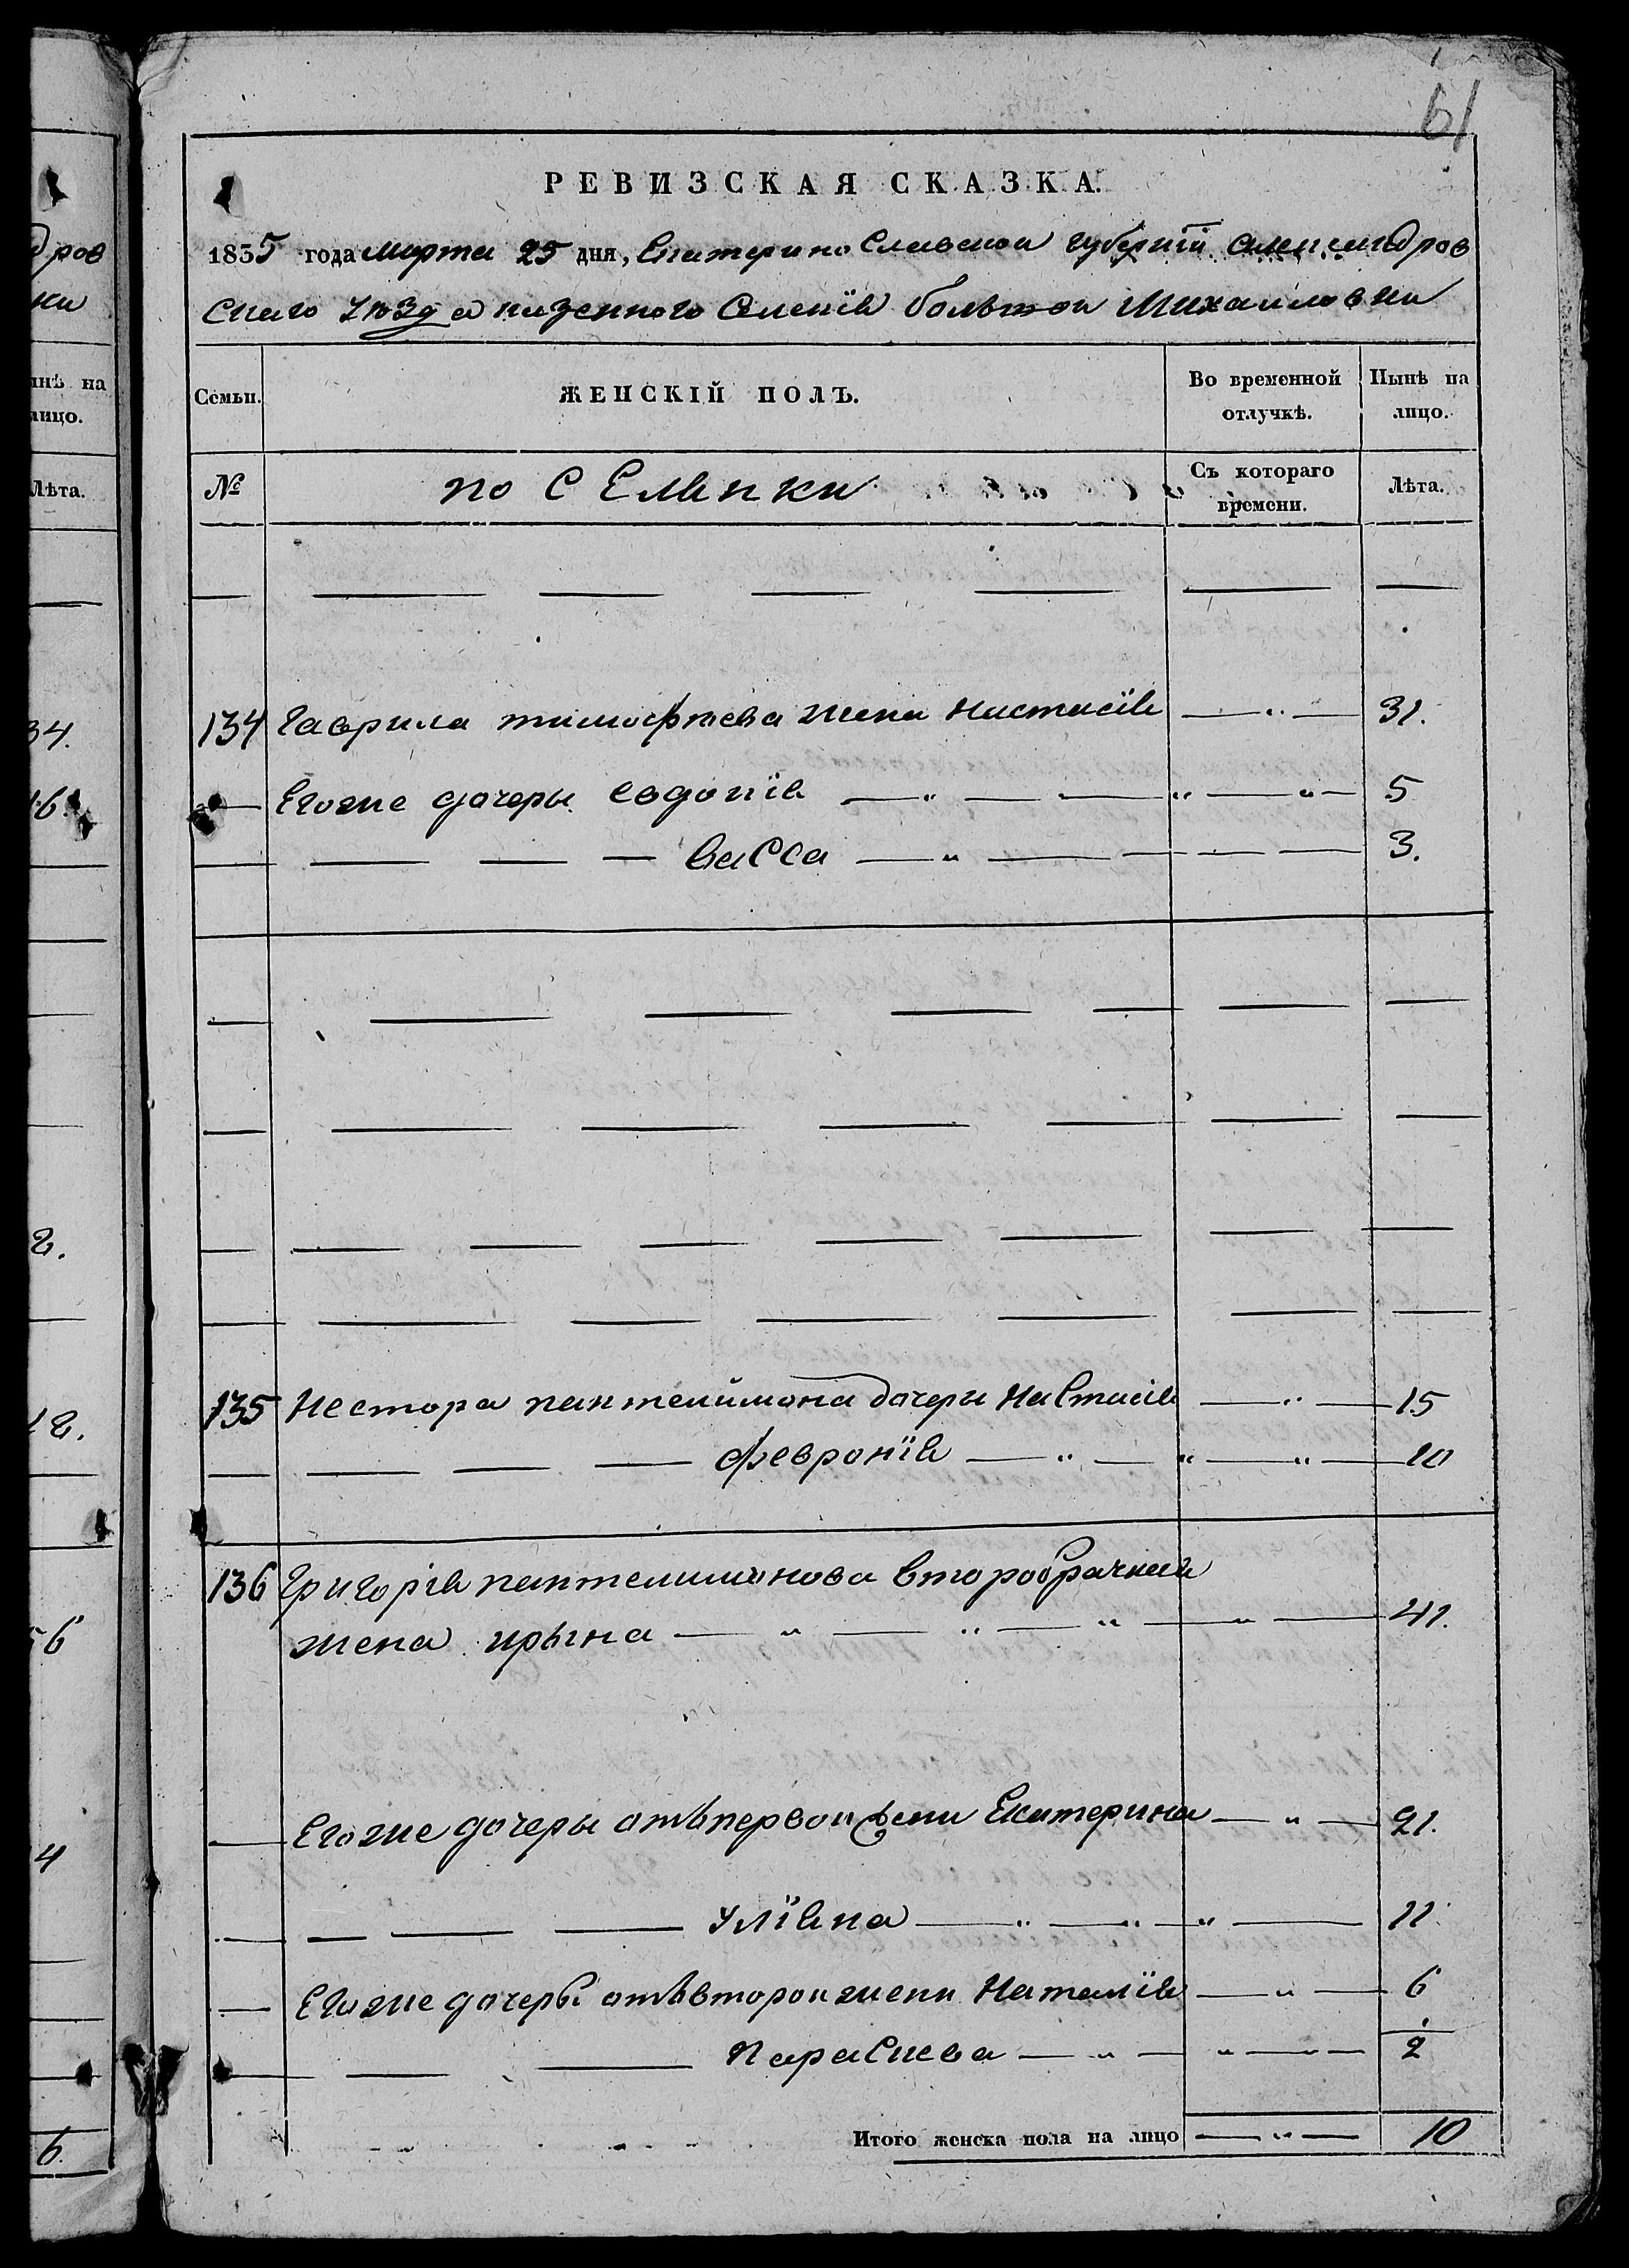 дров
ки
инѣ на
лицо.
Лѣта.
34.
16.
2.
12.
56
4
6.
61
РЕВИЗСКАЯ СКАЗКА.
1835 года марта 25 дня, Екатеринославской губернїи александров
скаго уѣзда казенного Селенїя большои Михаиловки
Семьи. ЖЕНСКІЙ ПОЛЪ. Во временной отлучкѣ. Нынѣ на лицо.
№ поСЕлянки Съ котораго времени. Лѣта.
134 Гаврила тимофѣева жена настасїя — " — 31.
— Егоже дочеры евдокїя — " — — " — " — 5
— — — — васса — " — — — — 3.
135 Нестора пантелимона дочери настасїя — " — 15
— — — — февронїя — " — " — " — 10
136 Григорія пантелимонова второбрачная
жена ирына — " — " — " — " — 41.
— Егоже дочеры отъпервои жени Екатерина — " — 21.
— — — — улїяна — " — " — " — 11.
— Егоже дочеры отъвторои жени Наталїя — " — 6
— — — Параскева — " — " — " — 2
Итого женска пола на лицо — " — 10